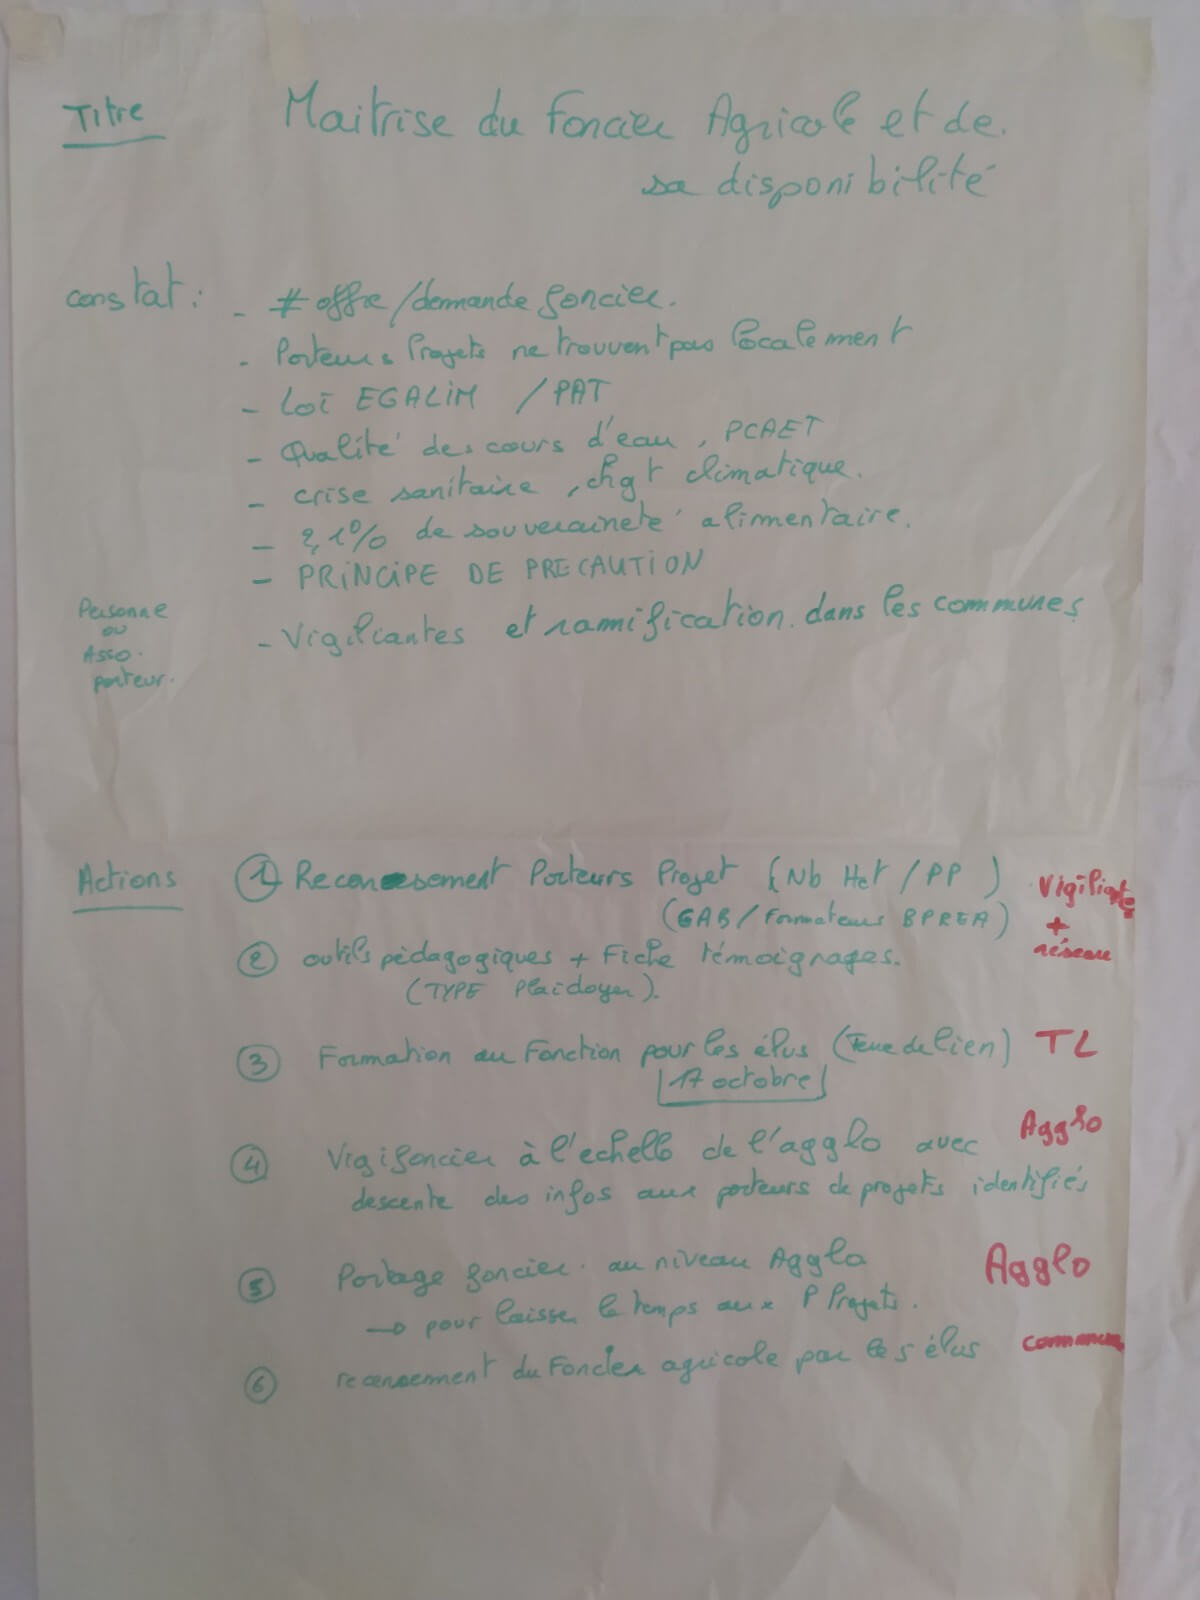 Titre Maitrise du Foncier Agricole et de
sa disponibilité
constat : - # offre / demande foncier.
- Porteurs Projets ne trouvent pas localement
- Loi EGALIM / PAT
- Qualité des cours d'eau, PCAET
- crise sanitaire, chgt climatique.
- 2,1% de souveraineté alimentaire.
- PRINCIPE DE PRECAUTION
Personne
ou
Asso.
porteur.
- Vigiliantes et ramification dans les communes
Actions ① Recensement Porteurs Projet (Nb Hct / PP) Vigiliante
(GAB / Formateurs BPREA) +
réseau
② outils pédagogiques + Fiche témoignages.
(TYPE Plaidoyer).
③ Formation au Fonction pour les élus (Terre de lien) TL
17 octobre
④ Vigifoncier à l'echelle de l'agglo avec Agglo
descente des infos aux porteurs de projets identifiés
⑤ Portage foncier. au niveau Agglo Agglo
→ pour laisser le temps aux P Projets.
⑥ recensement du Foncier agricole par les élus commune